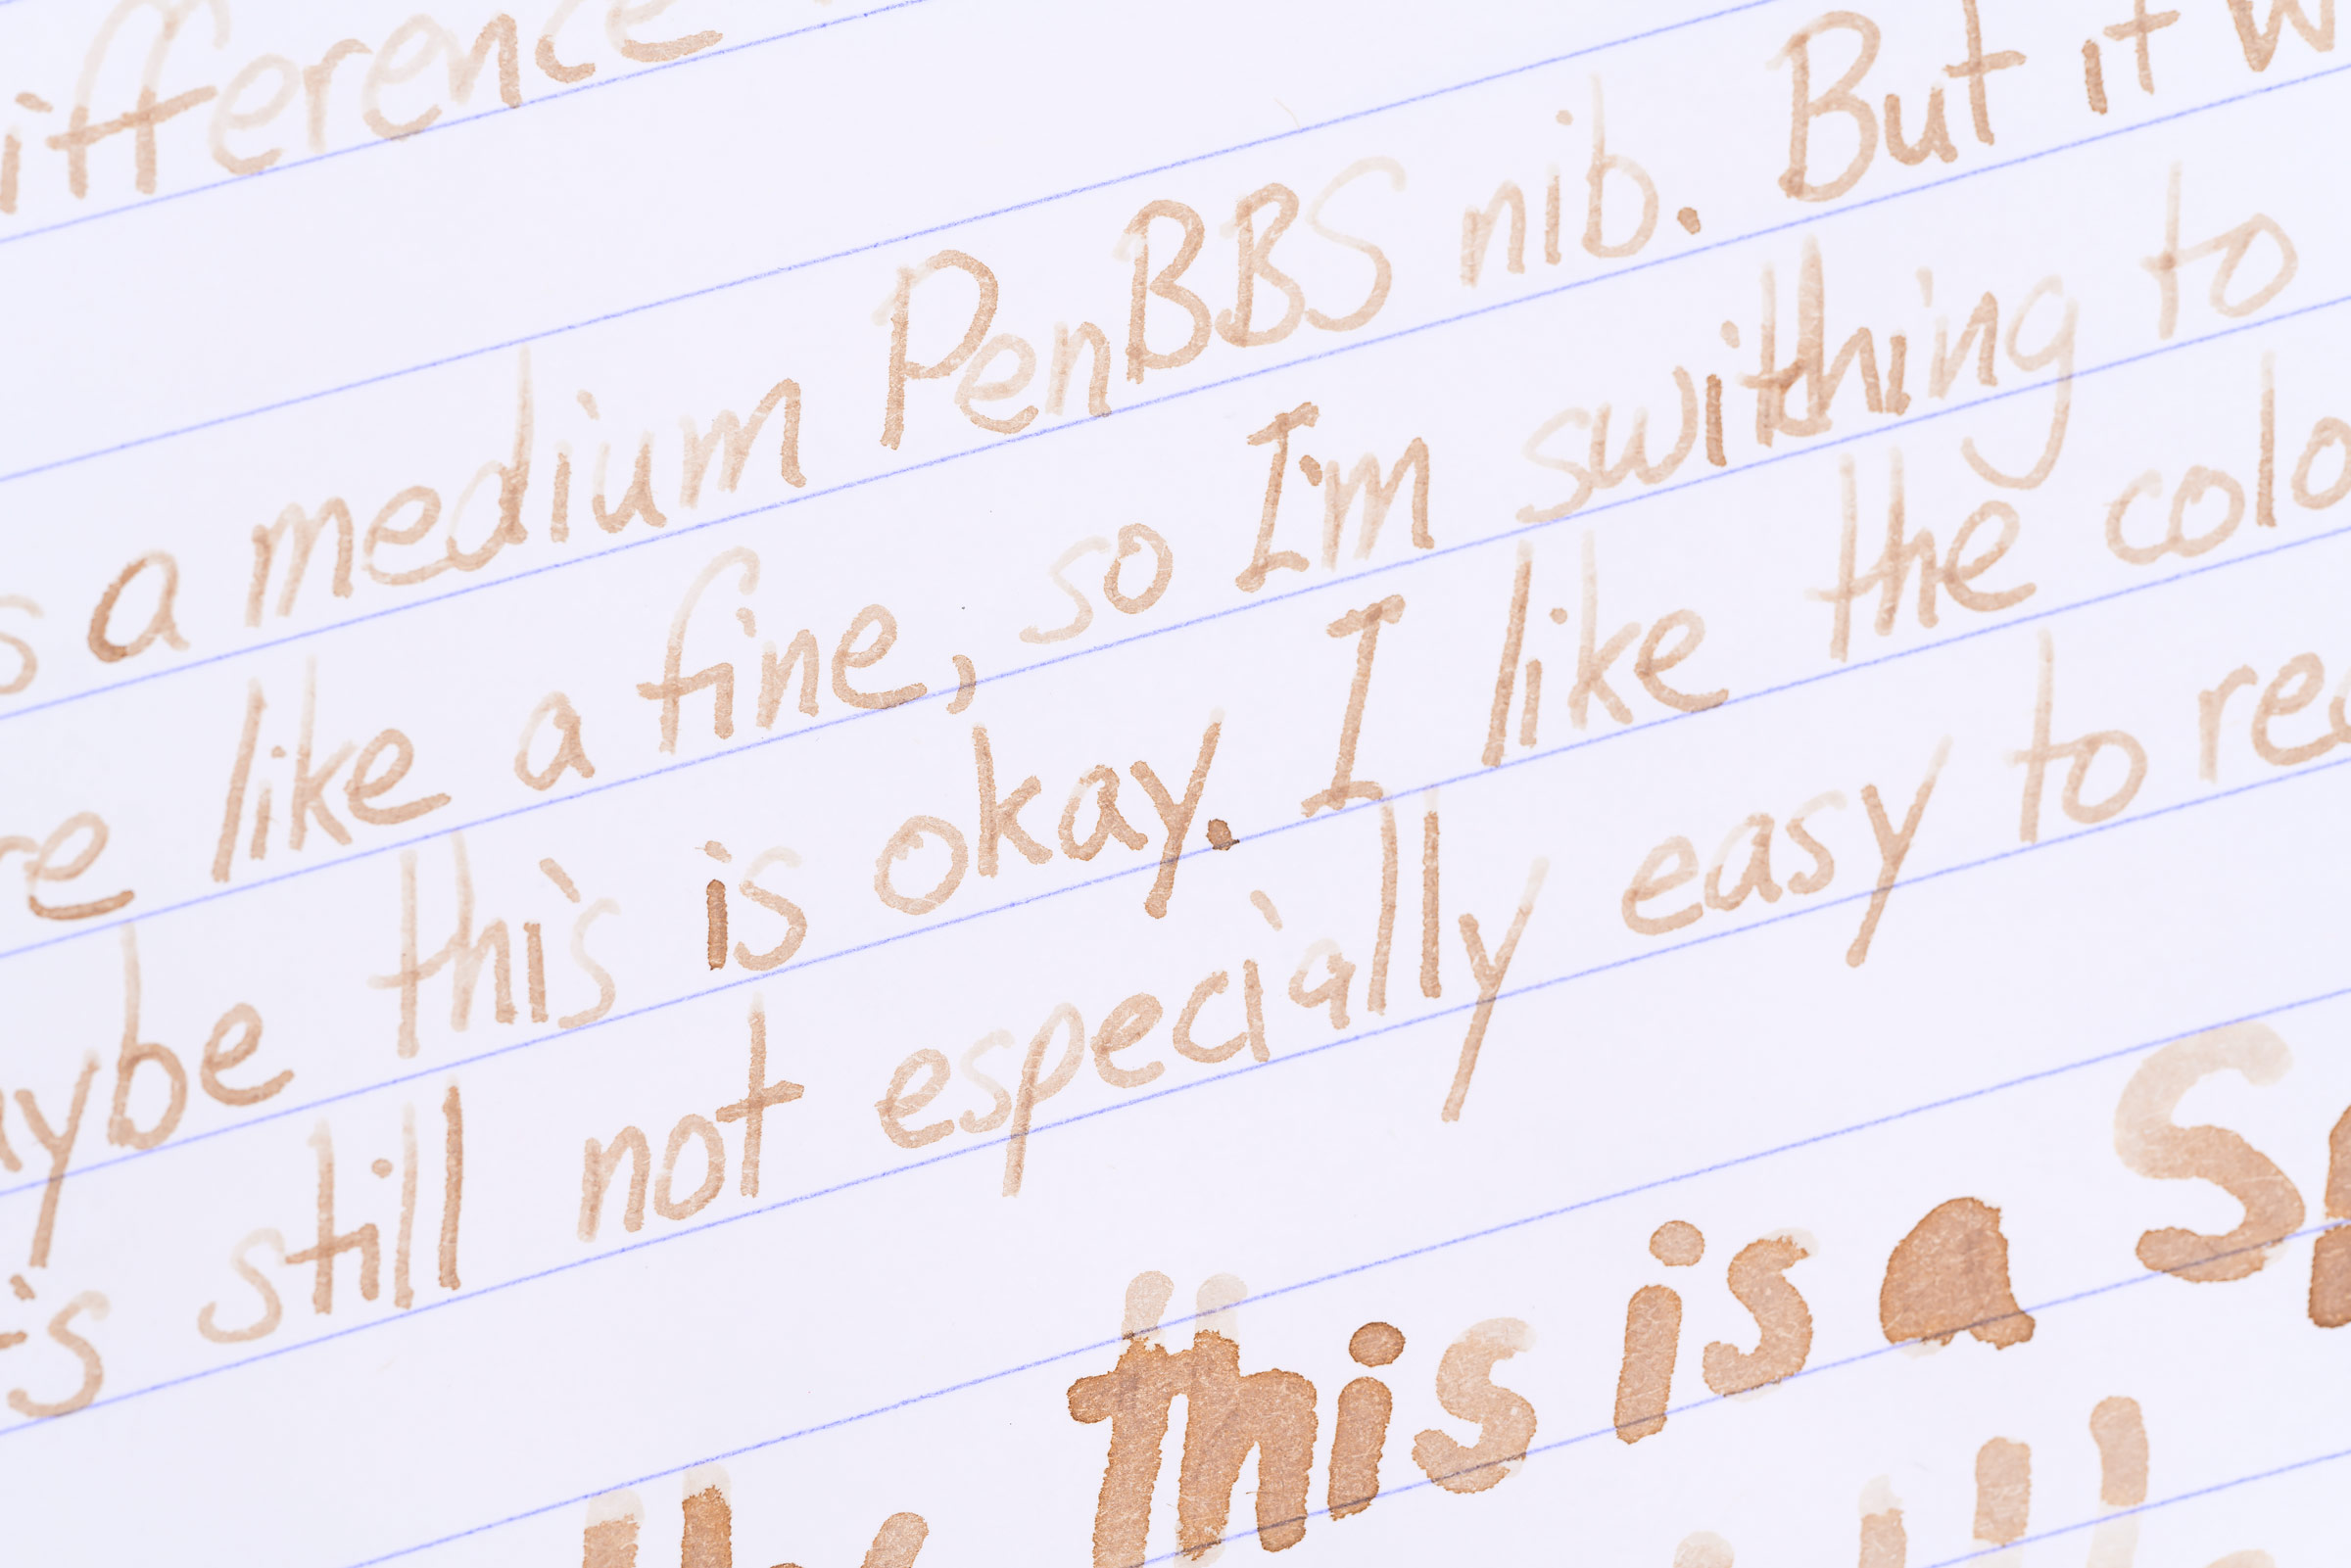 ifference
s a medium PenBBS nib. But it w
re like a fine, so I'm swithing to
aybe this is okay. I like the colo
t's still not especially easy to rea
this is a Sp